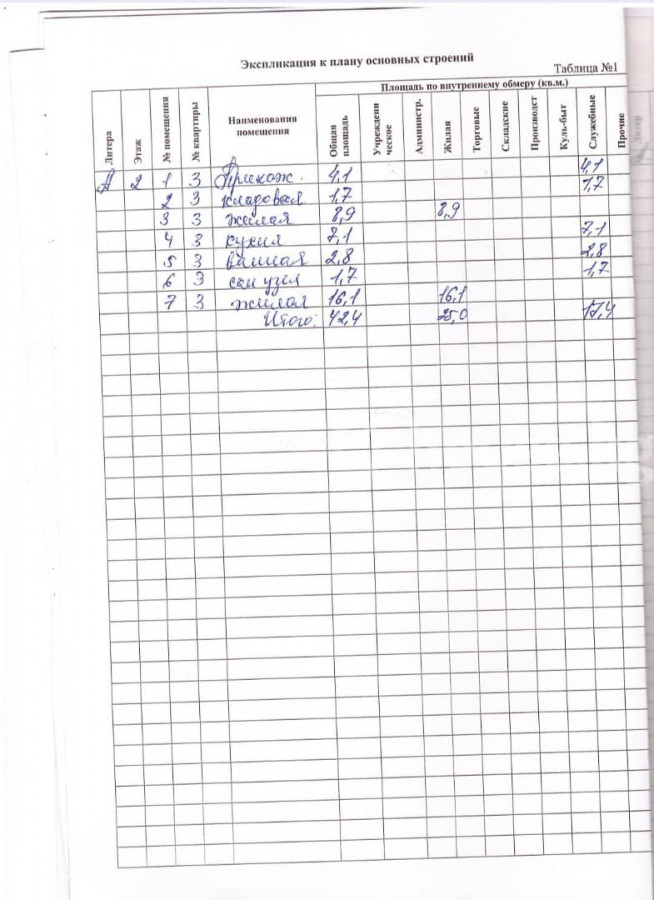 Экспликация к плану основных строений
Таблица №1
Литера Этаж № помещения № квартиры Наименования помещения Площадь по внутреннему обмеру (кв.м.)
Общая площадь Учреждени ческое Администр. Жилая Торговые Складские Производст Куль-быт Служебные Прочие
А 2 1 3 Прихож. 4,1 4,1
2 3 кладовая 1,7 1,7
3 3 жилая 8,9 8,9
4 3 кухня 7,1 7,1
5 3 ванная 2,8 2,8
6 3 сан узел 1,7 1,7
7 3 жилая 16,1 16,1
Итого: 42,4 25,0 17,4